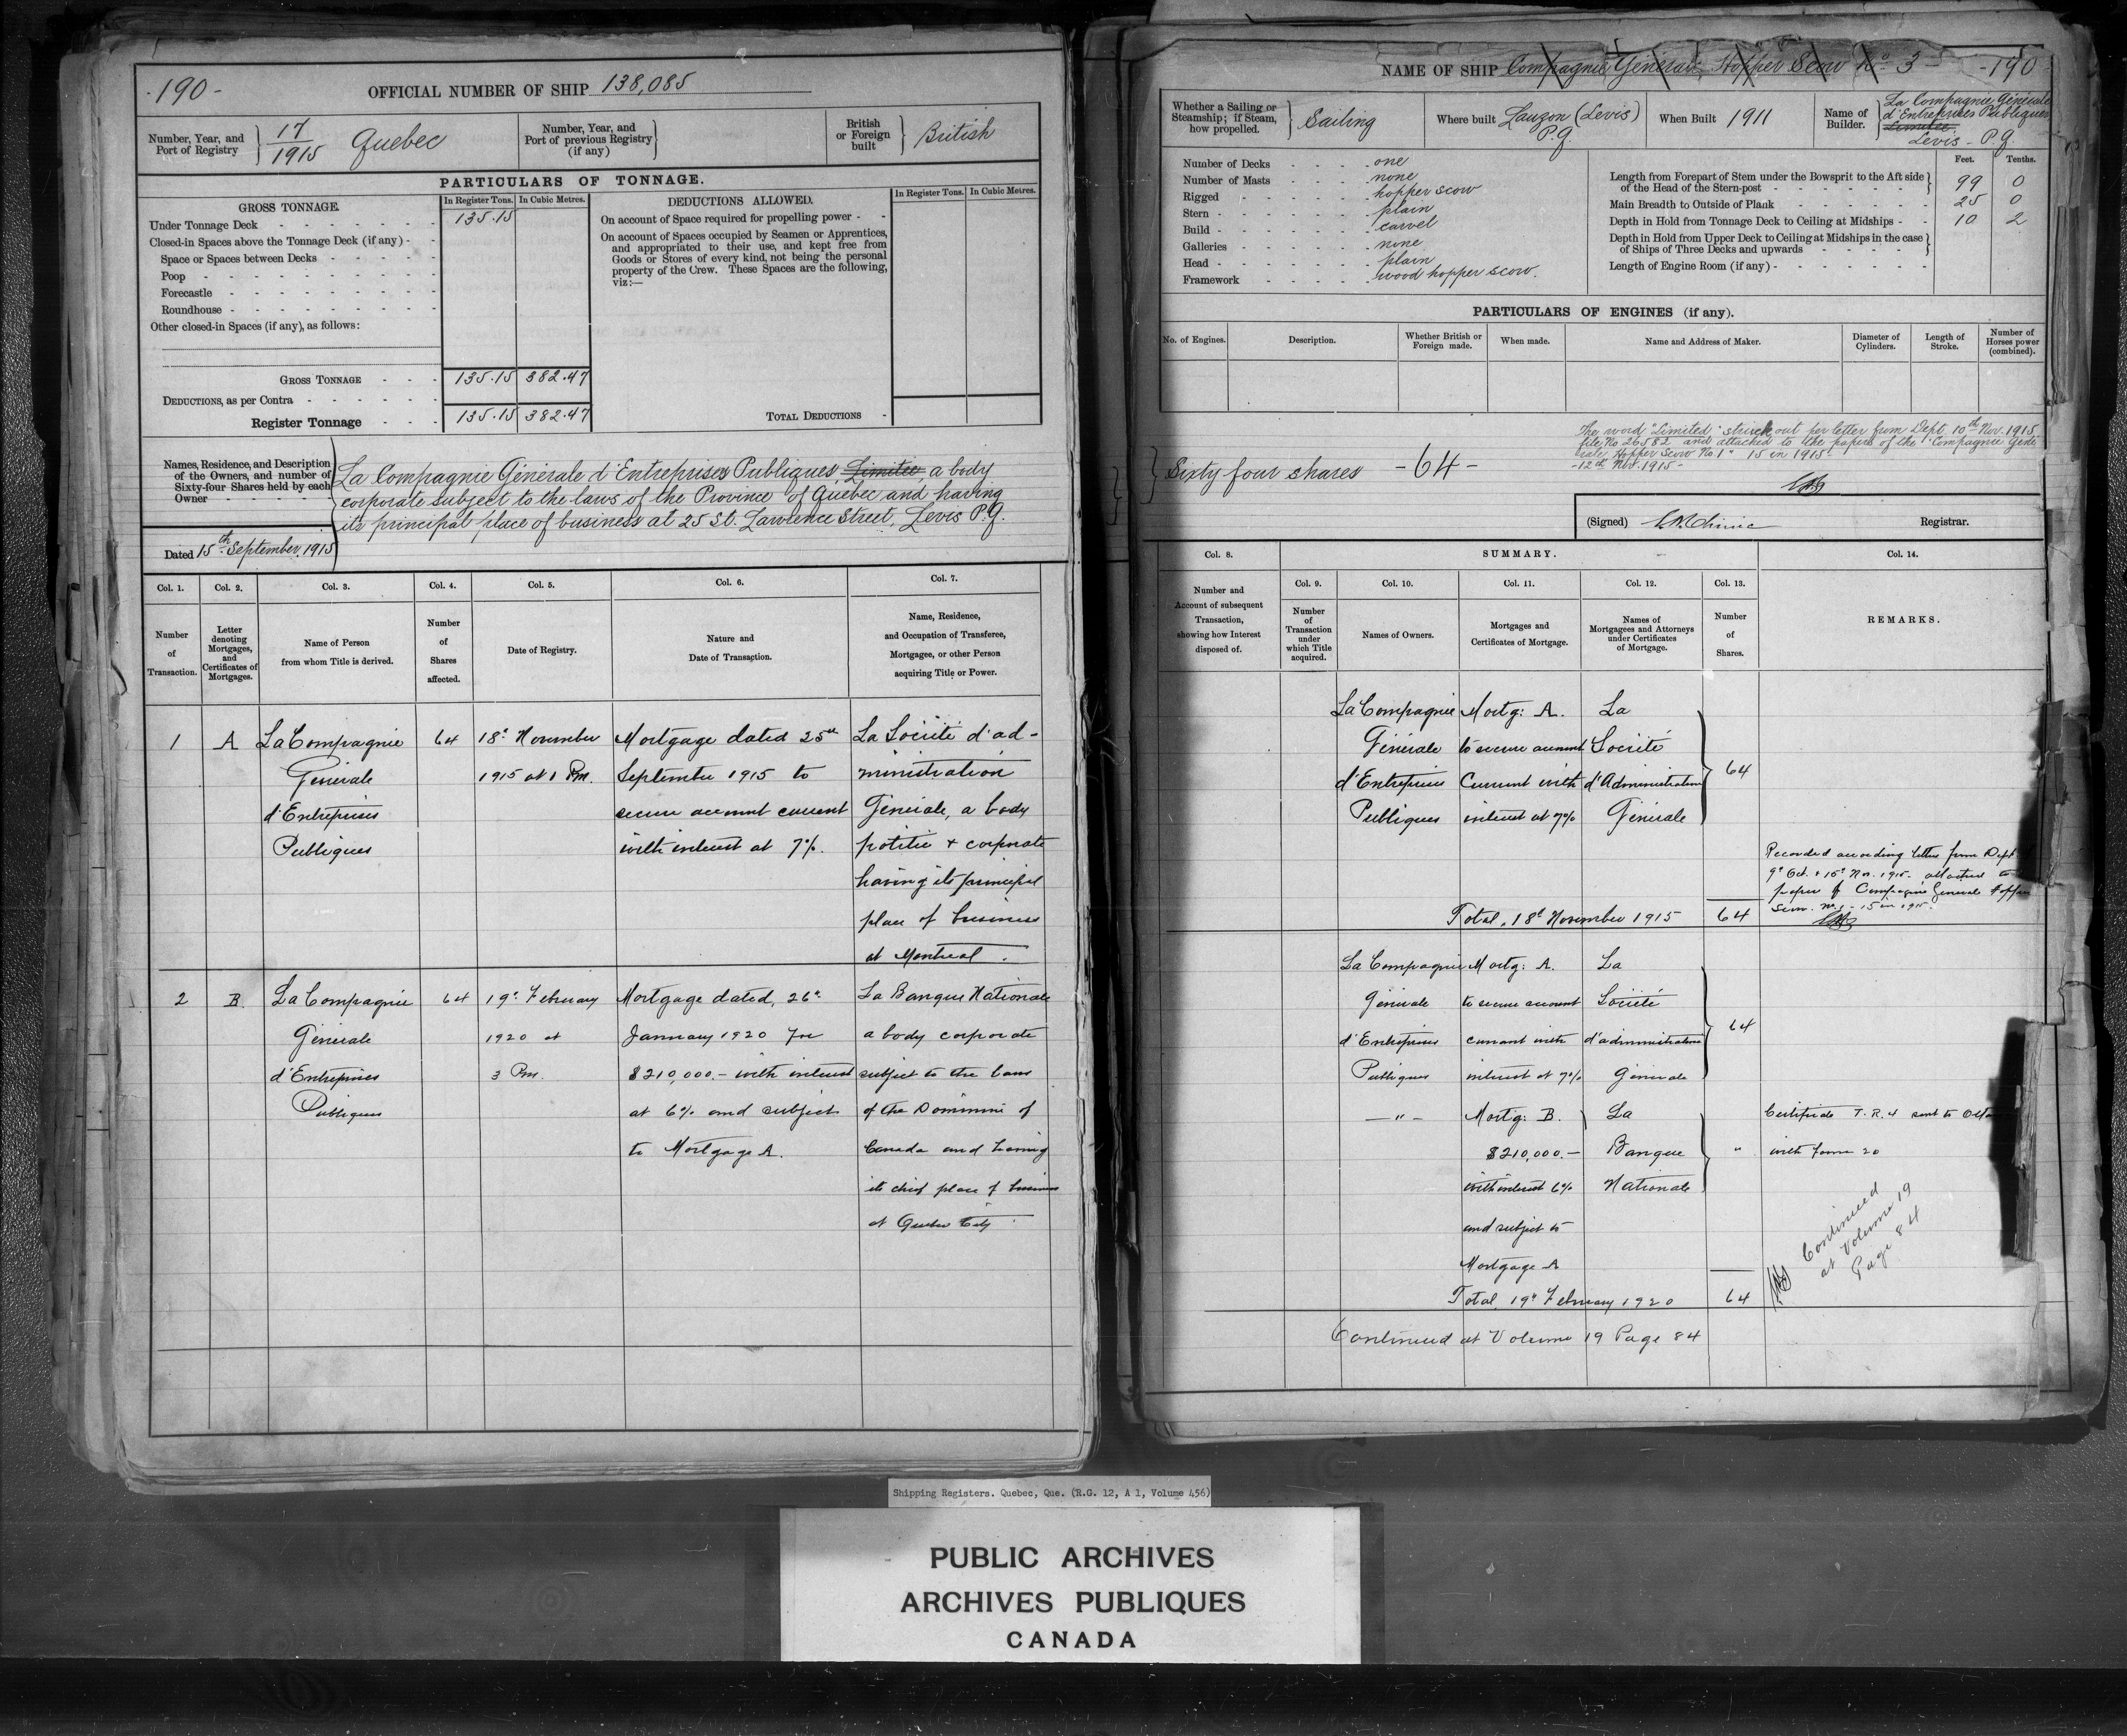 -190-
OFFICIAL NUMBER OF SHIP 138,085
Number, Year, and
Port of Registry
17
1915 Quebec
Number, Year, and
Port of previous Registry
(if any)
British
or Foreign
built
British
PARTICULARS OF TONNAGE.
GROSS TONNAGE.
In Register Tons. In Cubic Metres.
Under Tonnage Deck 135.15
Closed-in Spaces above the Tonnage Deck (if any)
Space or Spaces between Decks
Poop
Forecastle
Roundhouse
Other closed-in Spaces (if any), as follows:
GROSS TONNAGE 135.15 382.47
DEDUCTIONS, as per Contra
Register Tonnage 135.15 382.47
DEDUCTIONS ALLOWED.
In Register Tons. In Cubic Metres.
On account of Space required for propelling power
On account of Spaces occupied by Seamen or Apprentices,
and appropriated to their use, and kept free from
Goods or Stores of every kind, not being the personal
property of the Crew. These Spaces are the following,
viz:—
TOTAL DEDUCTIONS
Names, Residence, and Description
of the Owners, and number of
Sixty-four Shares held by each
Owner
La Compagnie Générale d'Entreprises Publiques, Limitée, a body
corporate subject to the laws of the Province of Quebec and having
its principal place of business at 25 St. Lawrence Street, Levis P.Q.
Dated 15th September, 1915
Col. 1. Col. 2. Col. 3. Col. 4. Col. 5. Col. 6. Col. 7.
Number
of
Transaction.
Letter
denoting
Mortgages,
and
Certificates of
Mortgages.
Name of Person
from whom Title is derived.
Number
of
Shares
affected.
Date of Registry.
Nature and
Date of Transaction.
Name, Residence,
and Occupation of Transferee,
Mortgagee, or other Person
acquiring Title or Power.
1 A La Compagnie 64 18th November Mortgage dated 25th La Société d'ad-
Générale 1915 at 1 Pm. September 1915 to ministration
d'Entreprises secure account current Générale, a body
Publiques with interest at 7%. politic & corporate
having its principal
place of business
at Montreal.
2 B. La Compagnie 64 19th February Mortgage dated, 26th La Banque Nationale
Générale 1920 at January 1920 for a body corporate
d'Entreprises 3 Pm. $210,000.- with interest subject to the laws
Publiques at 6% and subject of the Dominion of
to Mortgage A. Canada and having
its chief place of business
at Quebec City.
NAME OF SHIP Compagnie Générale Hopper Scow No 3 -190-
Whether a Sailing or
Steamship; if Steam,
how propelled.
Sailing
Where built Lauzon (Levis)
P.Q.
When Built 1911
Name of
Builder.
La Compagnie Générale
d'Entreprises Publiques
Limitée,
Levis - P.Q.
Number of Decks one
Number of Masts none
Rigged hopper scow
Stern plain
Build carvel
Galleries none
Head plain
Framework wood hopper scow.
Feet. Tenths.
Length from Forepart of Stem under the Bowsprit to the Aft side
of the Head of the Stern-post 99 0
Main Breadth to Outside of Plank 25 0
Depth in Hold from Tonnage Deck to Ceiling at Midships 10 2
Depth in Hold from Upper Deck to Ceiling at Midships in the case
of Ships of Three Decks and upwards
Length of Engine Room (if any)
PARTICULARS OF ENGINES (if any).
No. of Engines.
Description.
Whether British or
Foreign made.
When made.
Name and Address of Maker.
Diameter of
Cylinders.
Length of
Stroke.
Number of
Horses power
(combined).
The word "Limited" struck out per letter from Dept. 10th Nov. 1915
file No. 26582 and attached to the papers of the "Compagnie Géné
rale, Hopper Scow No. 1" 15 in 1915.
-12th Nov. 1915-
Sixty four shares -64-
(Signed) Registrar.
Col. 8. SUMMARY. Col. 14.
Col. 9. Col. 10. Col. 11. Col. 12. Col. 13.
Number and
Account of subsequent
Transaction,
showing how Interest
disposed of.
Number
of
Transaction
under
which Title
acquired.
Names of Owners.
Mortgages and
Certificates of Mortgage.
Names of
Mortgagees and Attorneys
under Certificates
of Mortgage.
Number
of
Shares.
REMARKS.
La Compagnie Mortg: A. La
Générale to secure account Société
d'Entreprises Current with d'Administration 64
Publiques interest at 7% Générale
Recorded according letters from Dept.
9th Oct. & 15th Nov. 1915. attached to
papers of Compagnie Generale Hopper
Scow. No. 1 - 15 in 1915.
Total, 18th November 1915 64
La Compagnie Mortg: A. La
Générale to secure account Société
d'Entreprises current with d'administration 64
Publiques interest at 7% Générale
—"— Mortg: B. La
$210,000.- Banque "
with interest 6% Nationale
and subject to
Mortgage A
Certificate T.R. 4 sent to
with Form 20
Continued
at Volume 19
Page 84
Total 19th February 1920 64
Continued at Volume 19 Page 84
Shipping Registers. Quebec, Que. (R.G. 12, A 1, Volume 456)
PUBLIC ARCHIVES
ARCHIVES PUBLIQUES
CANADA